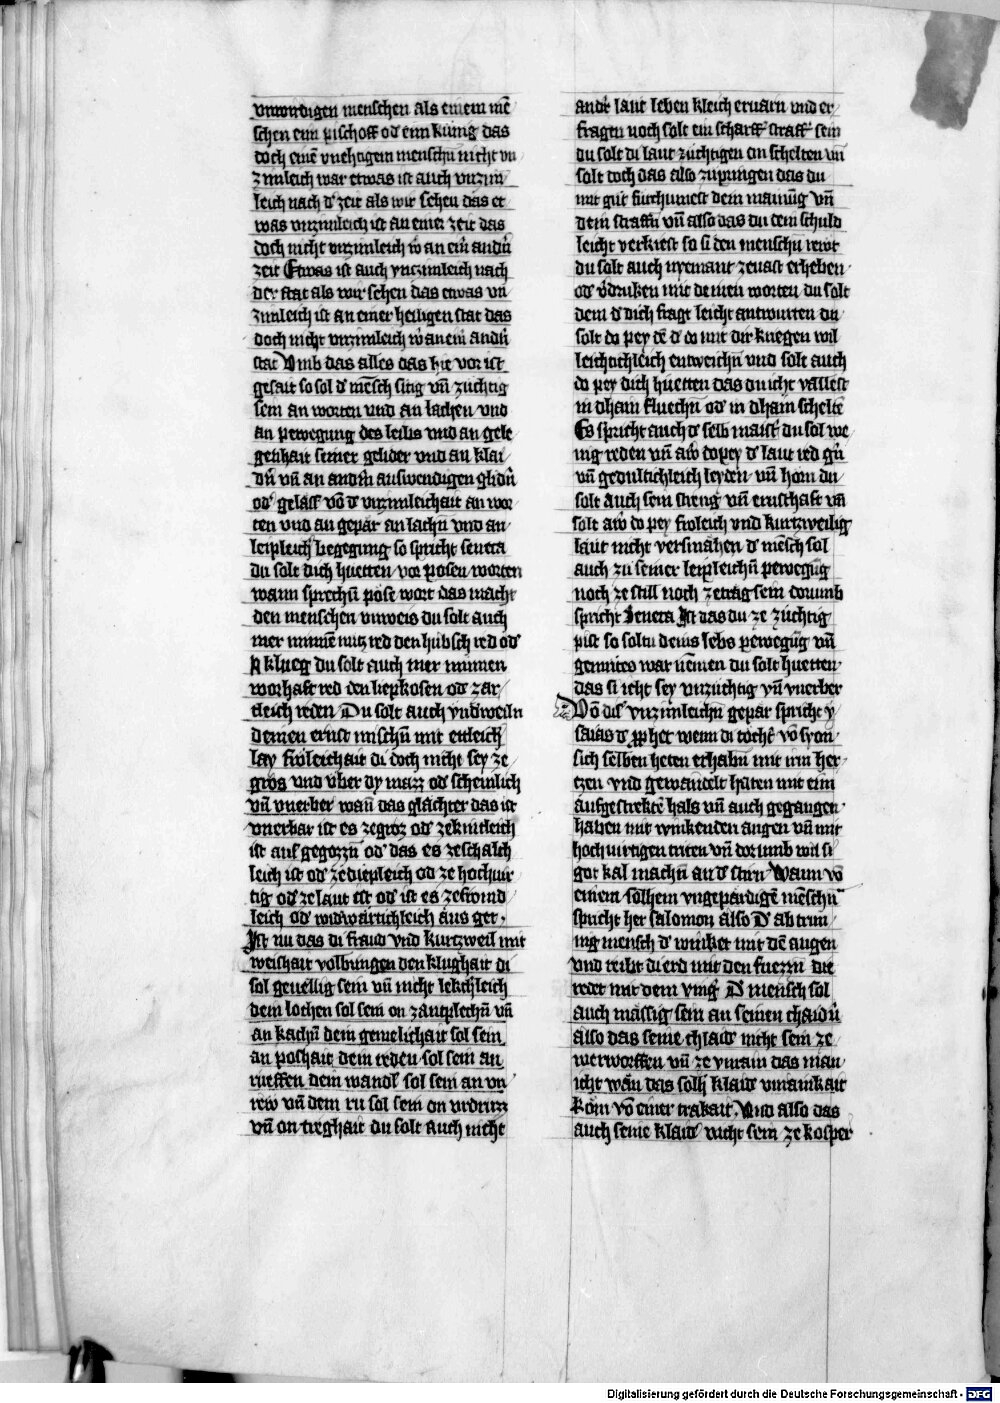 unwirdigen menschen als einem mē
schen eim pischoff od' eim kunig das
doch einē vnehagem menschn̄ nicht vn
zimleich wär etwas ist auch vnzim
leich nach d' zeit als wir sehen das et
was vnzimleich ist an einer zeit das
doch nicht vnzimleich w' an eim̄ andn̄
zeit Etwas ist auch vnczimleich nach
der stat als wir sehen das etwas vn
zimleich ist an einer heiligen stat das
doch nicht vnzimleich w' an eim̄ andn̄
stat Vmb das alles das hie vor ist
gesait so sol d' mēsch sitig vn̄ züchtig
sein an worten vnd an lachen vnd
an pewegung des leibs vnd an gele
genhait seiner gelider vnd an klai
dn̄ vn̄ an andn̄ auswendigen glidn̄
od' geläss vō d' vnzimleichait an wor
ten vnd an gepär an lachn̄ vnd an
leipleich begegung so spricht seneca
du solt dich huetten vor posen worten
wann sprechn̄ pöse wort das macht
den menschen vnweis du solt auch
mer minnē nucz red den hübsch red od'
klueg du solt auch mer minnen
worhaft red den liepkosen od' zar
tleich reden Du solt auch vndweiln
deinen ernst mischn̄ mit etleich
lay fröleichait di doch nicht sey ze
gros vnd vber dy mazz od' scheinlich
vn̄ vnerber wan̄ das glächter das ist
vnerbar ist es zegroz od' zekintleich
ist aus gegozzn̄ od' das es zeschalch
leich ist od' zediepleich od' ze hochuir
tig od' ze laut ist od' ist es
leich od' widwärtichleich äus get
Ist nu das di fraud vnd kurtzweil mit
weishait volbungen den klughait di
sol geuellig sein vn̄ nicht
dem lochen sol sein on vn̄
an kachn̄ dem gemelichait sol sein
an poshait dem reden sol sein an
rueffen dem wandl' sol sein an vn
rew vn̄ dem ru sol sein on vrdruzz
vn̄ on treghait du solt auch nicht
andr' laut leben kleich eruarn vnd er
fragen noch solt ein scharff straff' sein
du solt di laut züchtigen on schelten vn̄
solt doch das also zupringen das du
mit güt furchumest dem mainūg vn̄
dem straffn̄ vn̄ also das du dem schuld
leicht verkiest so si den menschn̄ rewt
du solt auch nyemant zeuast erheben
od' v'druken mit deinen worten du solt
dem d' dich fragt leicht antwurten du
solt do pey dē d' do mit dir kriegen wil
leichtichleich entweichn̄ vnd solt auch
do pey dich huetten das du icht vallest
in dhain fluechn̄ od' in dhain scheltē
Es spricht auch d' selb maist' du sol we
nig reden vn̄ do pey d' laut red gn̄
vn̄ gedultichleich leyden vn̄ horn du
solt auch sein streng vn̄ ernschaft vn̄
solt do pey froleich vnd kurtzweilig
laut nicht versmähen d' mēsch sol
auch zu seiner leipleichn̄ pewegūg
noch ze still noch ze träg sein dorumb
spricht Seneca Ist das du ze züchtig
pist so soltu deins leibs pewegūg vn̄
gemütes war nemen du solt huetten
das si icht sey vnzüchtig vn̄ vnerber
Vō dis' vnzimleichn̄ gepär spricht y
saias d' pphet wenn di töcht' vō syon
sich selben heten erhabn̄ mit irm her
tzen vnd gewandelt haten mit eim
aufgestrektē hals vn̄ auch gegangen
haben mit winkenden augen vn̄ mit
hochuirtigen triten vn̄ dorumb wil si
got kal machn̄ an d' stirn Wann vō
einem solhem vngepärdigē mēschn̄
spricht her salomon also D' abtrün
nig mensch d' winket mit dē augen
vnd reibt di erd mit den fuezzn̄ die
redet mit dem ving' D' mensch sol
auch mässig sein an seinen chaidn̄
also das seine chlaid' nicht sein ze
werworffen vn̄ ze vnrain das man
icht wän̄ das solh klaid' vnrainkait
köm vō einer trakait Vnd also das
auch seine klaid' nicht sein ze kosper
Digitalisierung gefördert durch die Deutsche Forschungsgemeinschaft - DFG